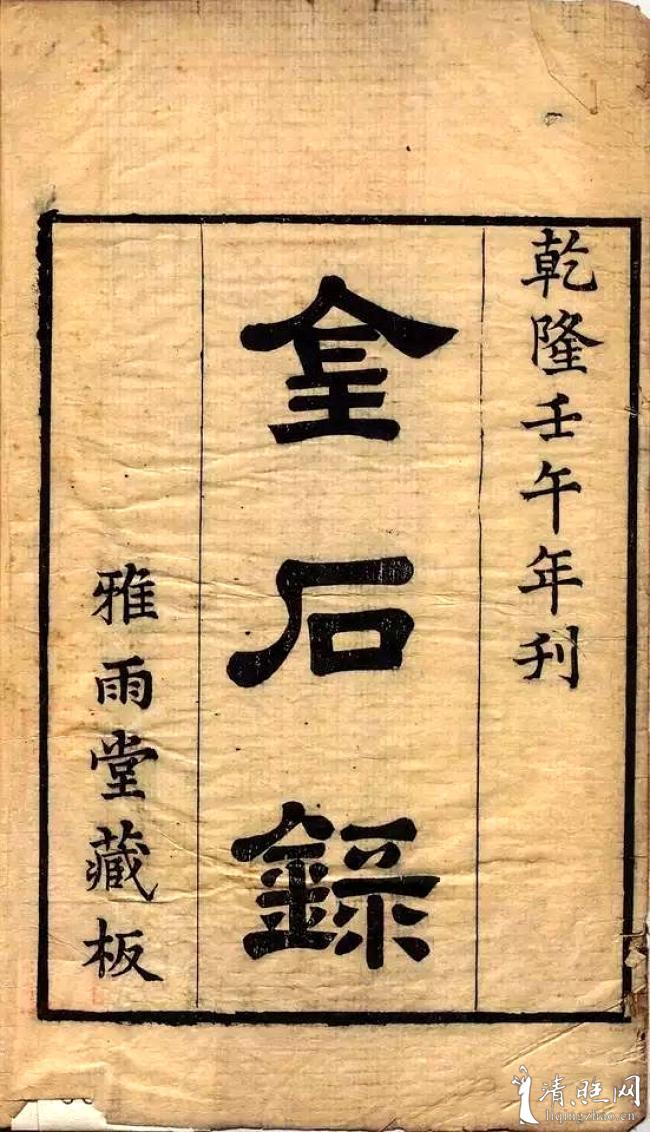 乾隆壬午年刊
金石録
雅雨堂藏板
清照网
liqingzhao.cn